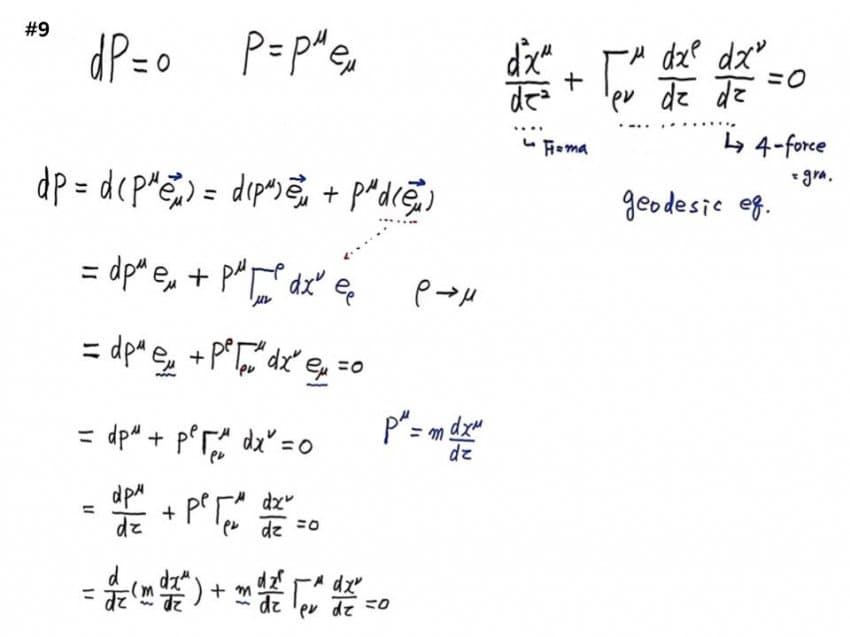 #9
dP = 0    P = P^μ e_μ
d²x^μ/dτ² + Γ^μ_ρν dx^ρ/dτ dx^ν/dτ = 0
↳ F=ma    ↳ 4-force
= gra.
geodesic eq.
dP = d(P^μ e⃗_μ) = d(P^μ) e⃗_μ + P^μ d(e⃗_μ)
= dP^μ e_μ + P^μ Γ^ρ_μν dx^ν e_ρ    ρ → μ
= dP^μ e_μ + P^ρ Γ^μ_ρν dx^ν e_μ = 0
= dP^μ + P^ρ Γ^μ_ρν dx^ν = 0    P^μ = m dx^μ/dτ
= dP^μ/dτ + P^ρ Γ^μ_ρν dx^ν/dτ = 0
= d/dτ (m dx^μ/dτ) + m dx^ρ/dτ Γ^μ_ρν dx^ν/dτ = 0